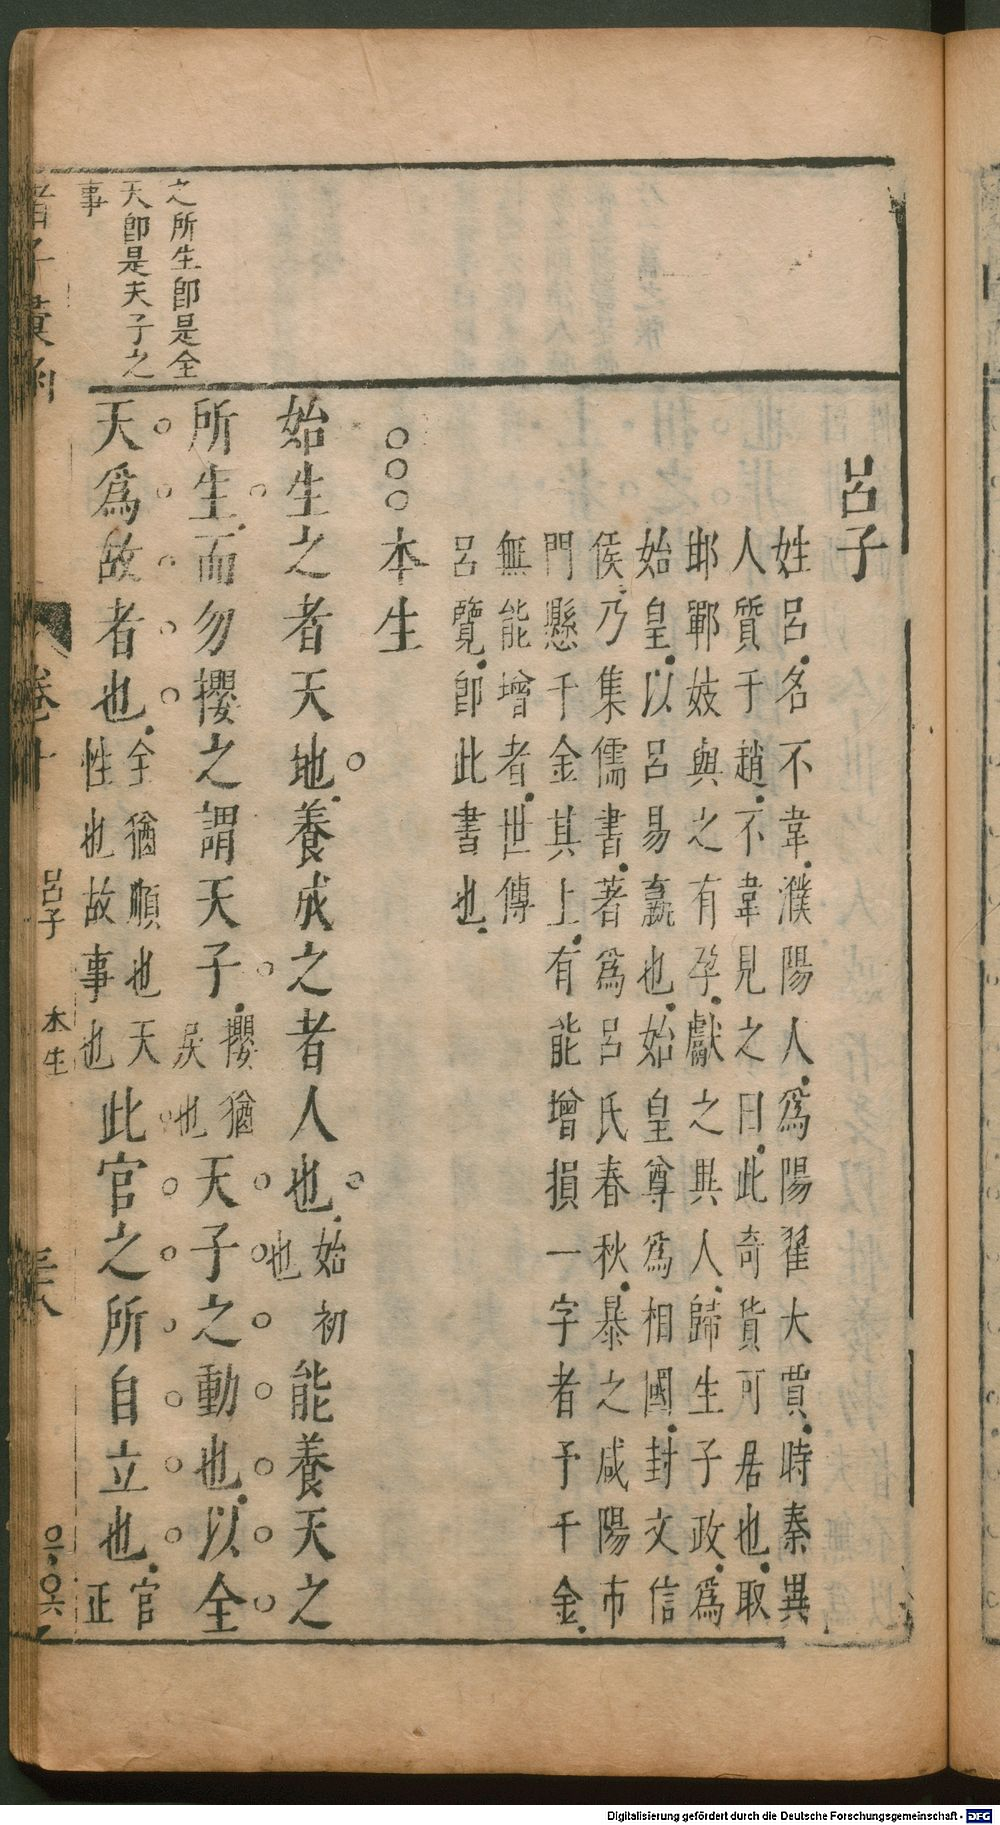 之所生卽是全
天卽是天子之
事
呂子
姓呂名不韋濮陽人爲陽翟大賈時秦異
人質于趙不韋見之曰此奇貨可居也取
邯鄲妓與之有孕獻之異人歸生子政爲
始皇以呂易嬴也始皇尊爲相國封文信
侯乃集儒書著爲呂氏春秋暴之咸陽市
門懸千金其上有能增損一字者予千金
無能增者世傳
呂覽卽此書也
○○○本生
始生之者天地養成之者人也始初也能養天之
所生而勿攖之謂天子攖猶戾也天子之動也以全
天爲故者也全猶順也天性也故事也此官之所自立也官正
卷十 呂子 本生
Digitalisierung gefördert durch die Deutsche Forschungsgemeinschaft - DFG